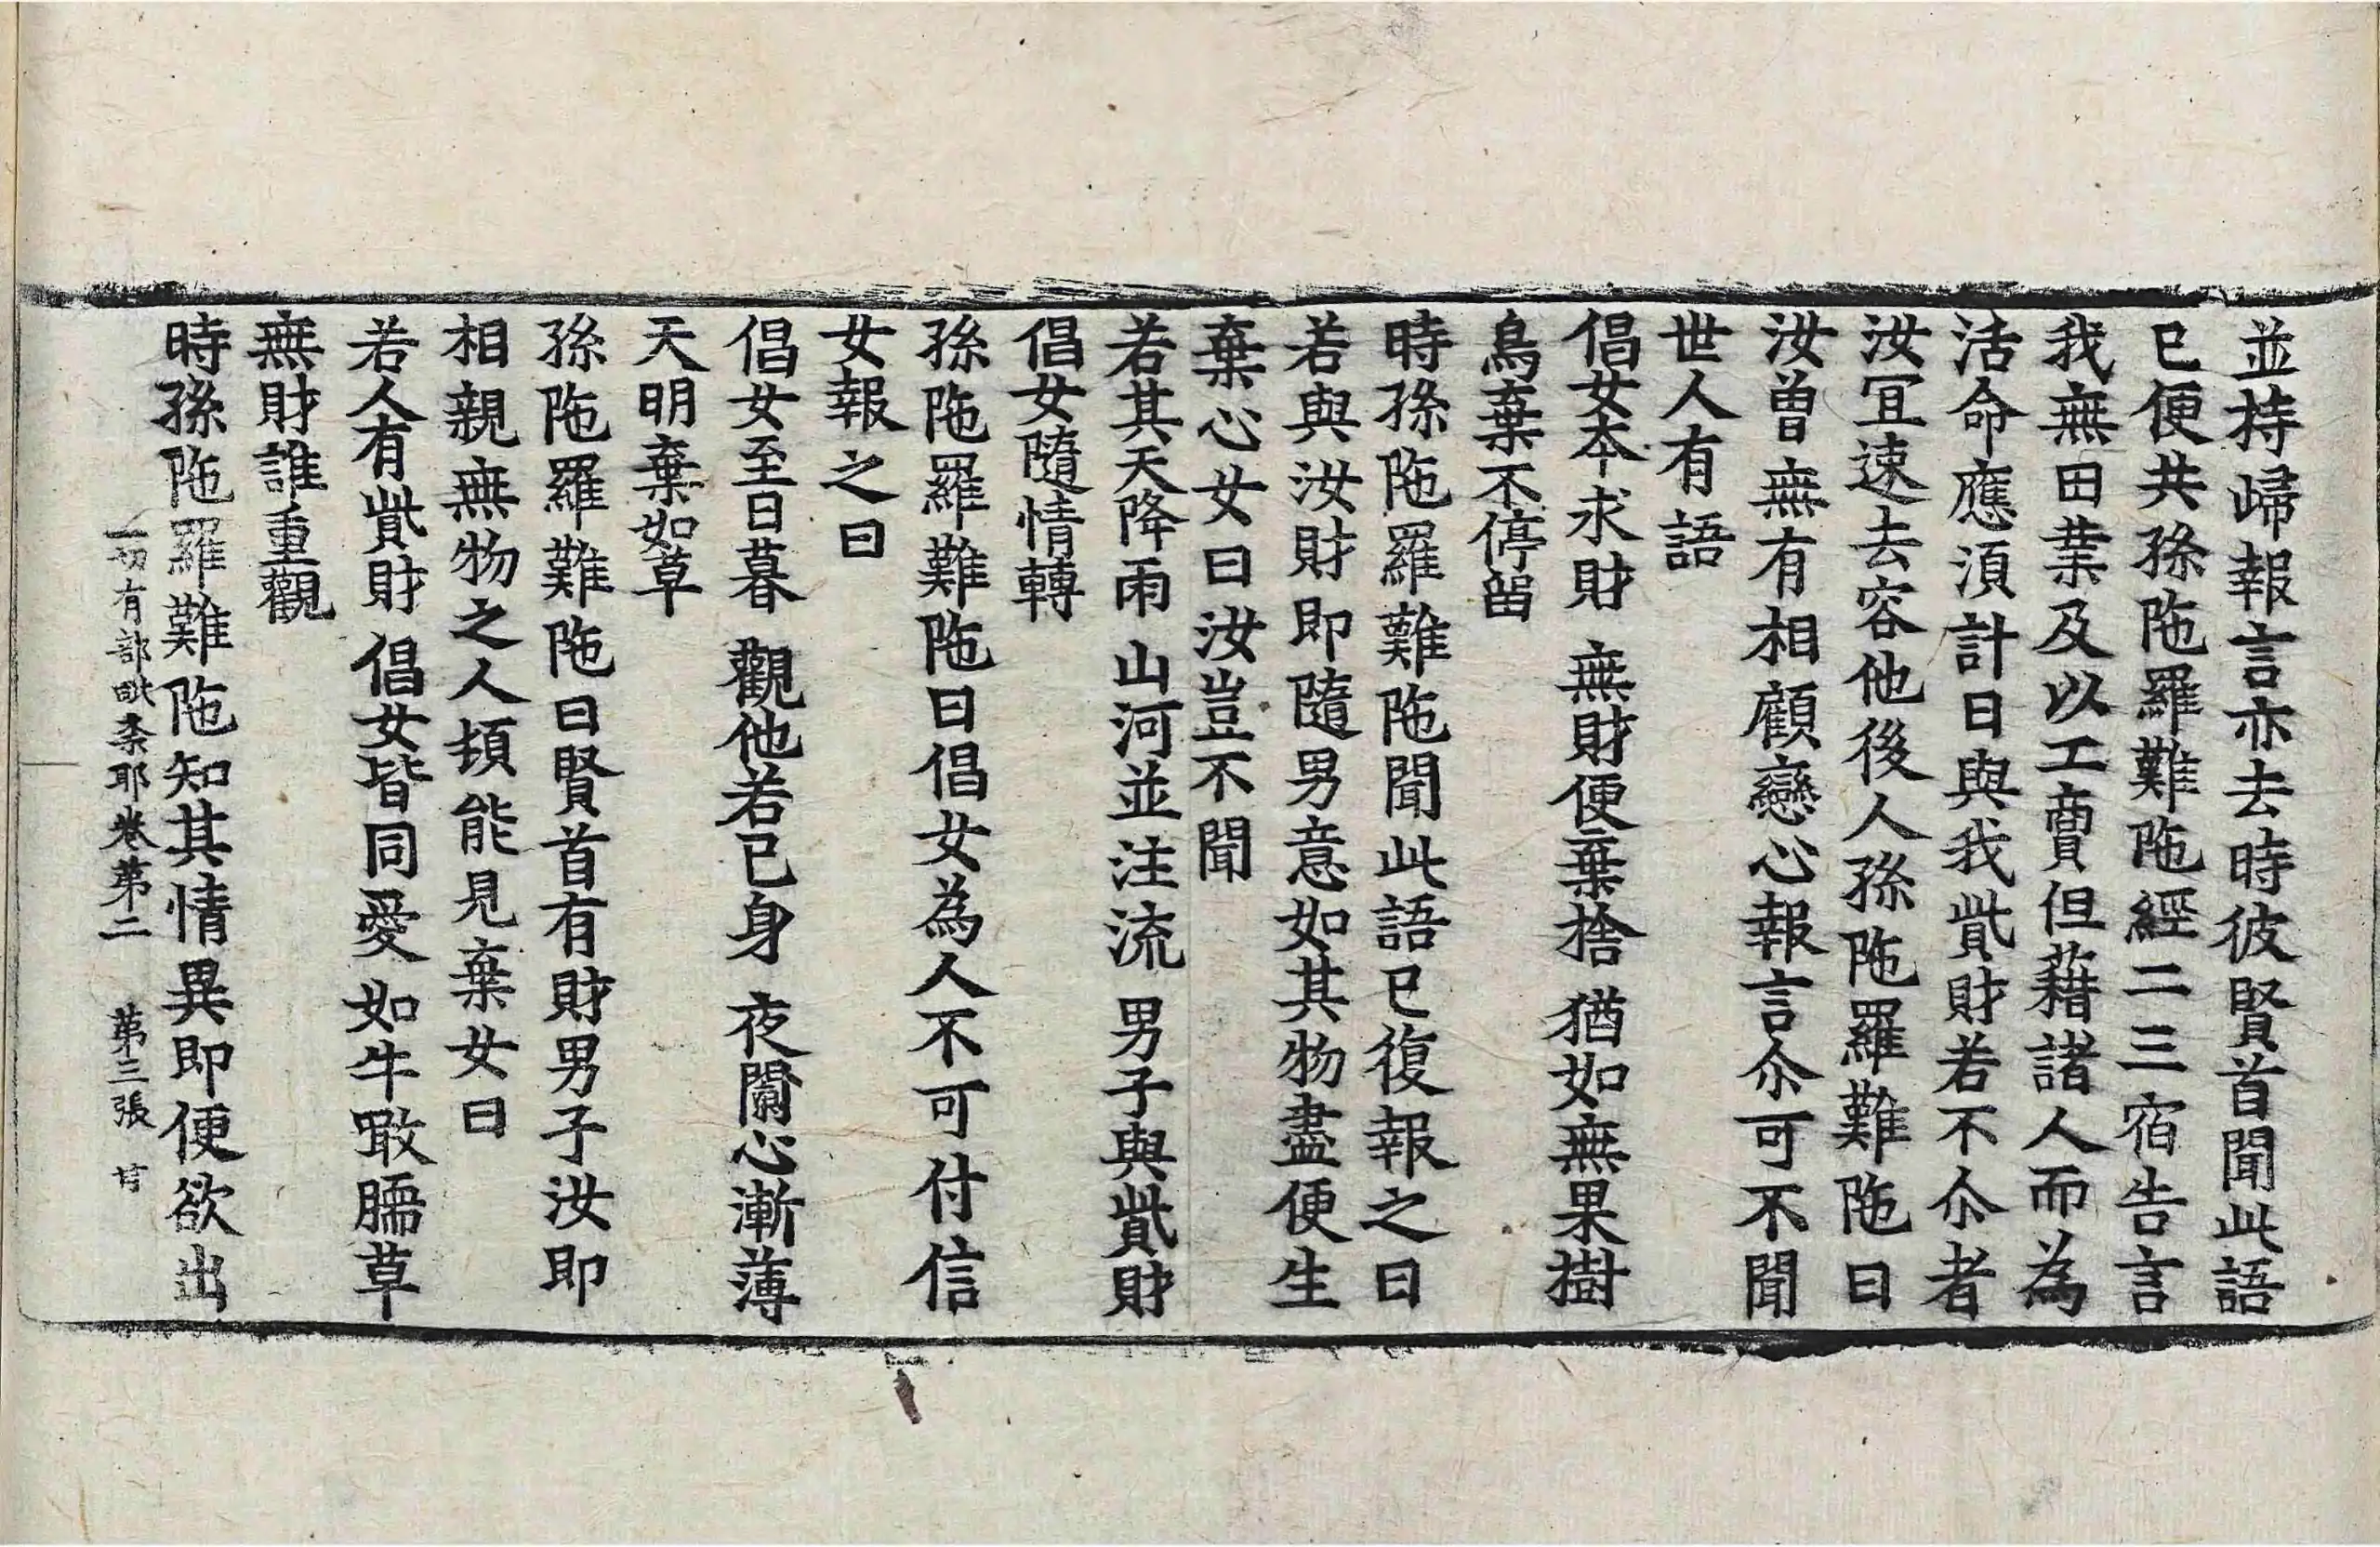 並持歸報言亦去時彼賢首聞此語
已便共孫陁羅難陁經二三宿告言
我無田業及以工賣但藉諸人而為
活命應湏計日與我貲財若不尒者
汝冝速去容他後人孫陁羅難陁曰
汝曾無有相顧戀心報言尒可不聞
世人有語
倡女本求財　無財便棄捨　猶如無果樹
鳥棄不停留
時孫陁羅難陁聞此語已復報之曰
若與汝財即隨男意如其物盡便生
棄心女曰汝豈不聞
若其天降雨　山河並注流　男子與貲財
倡女隨情轉
孫陁羅難陁曰倡女為人不可付信
女報之曰
倡女至日暮　觀他若己身　夜闌心漸薄
天明棄如草
孫陁羅難陁曰賢首有財男子汝即
相親無物之人頓能見棄女曰
若人有貲財　倡女皆同愛　如牛噉臑草
無財誰重觀
時孫陁羅難陁知其情異即便欲出
一切有部毗柰耶卷第二　第三張